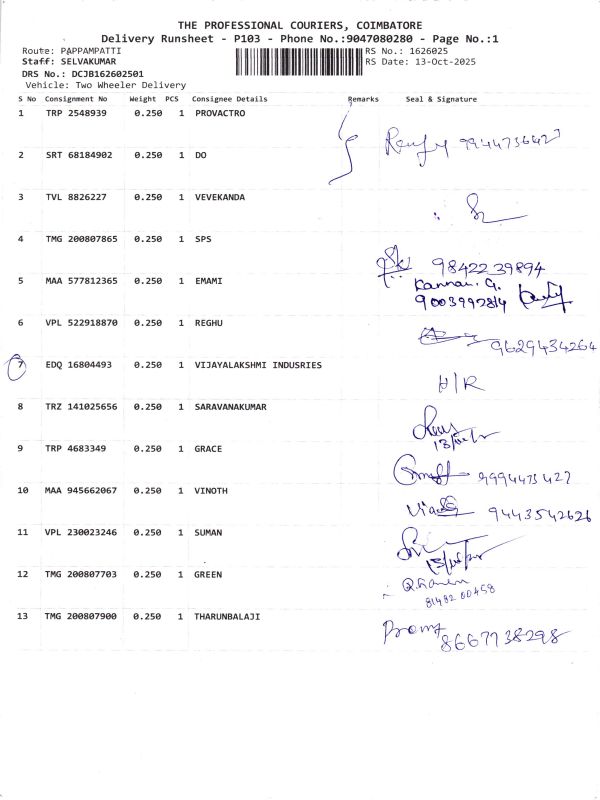 THE PROFESSIONAL COURIERS, COIMBATORE
Delivery Runsheet - P103 - Phone No.:9047080280 - Page No.:1
Route: PAPPAMPATTI RS No.: 1626025
Staff: SELVAKUMAR RS Date: 13-Oct-2025
DRS No.: DCJB162602501
Vehicle: Two Wheeler Delivery
S No Consignment No Weight PCS Consignee Details Remarks Seal & Signature
1 TRP 2548939 0.250 1 PROVACTRO
2 SRT 68184902 0.250 1 DO
3 TVL 8826227 0.250 1 VEVEKANDA
4 TMG 200807865 0.250 1 SPS
98422 39894
5 MAA 577812365 0.250 1 EMAMI
Kannan. G.
6 VPL 522918870 0.250 1 REGHU
9629434264
7 EDQ 16804493 0.250 1 VIJAYALAKSHMI INDUSRIES
H/R
8 TRZ 141025656 0.250 1 SARAVANAKUMAR
9 TRP 4683349 0.250 1 GRACE
10 MAA 945662067 0.250 1 VINOTH
9443542626
11 VPL 230023246 0.250 1 SUMAN
12 TMG 200807703 0.250 1 GREEN
13 TMG 200807900 0.250 1 THARUNBALAJI
8667738298